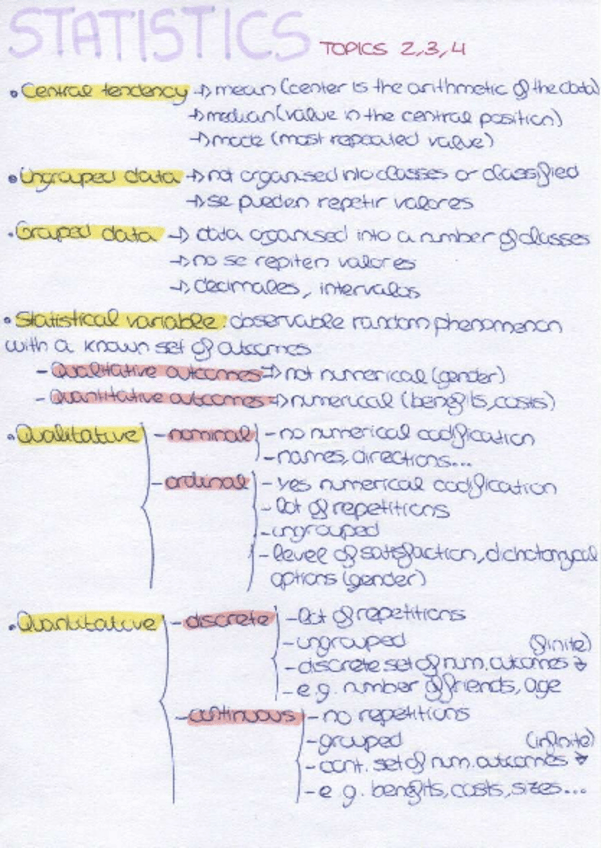 STATISTICS TOPICS 2,3,4
• Central tendency → mean (center is the arithmetic of the data)
→ median (value in the central position)
→ mode (most repeated value)
• Ungrouped data → not organised into classes or classified
→ se pueden repetir valores
• Grouped data → data organised into a number of classes
→ no se repiten valores
→ decimales, intervalos
• Statistical variable: observable random phenomenon
with a known set of outcomes
- Qualitative outcomes ⇒ not numerical (gender)
- Quantitative outcomes ⇒ numerical (benefits, costs)
• Qualitative - nominal - no numerical codification
- names, directions...
- ordinal - yes numerical codification
- lot of repetitions
- ungrouped
- level of satisfaction, dichotomycal
options (gender)
• Quantitative - discrete - lot of repetitions
- ungrouped (finite)
- discrete set of num. outcomes
- e.g. number of friends, age
- continuous - no repetitions
- grouped (infinite)
- cont. set of num. outcomes
- e g. benefits, costs, sizes...